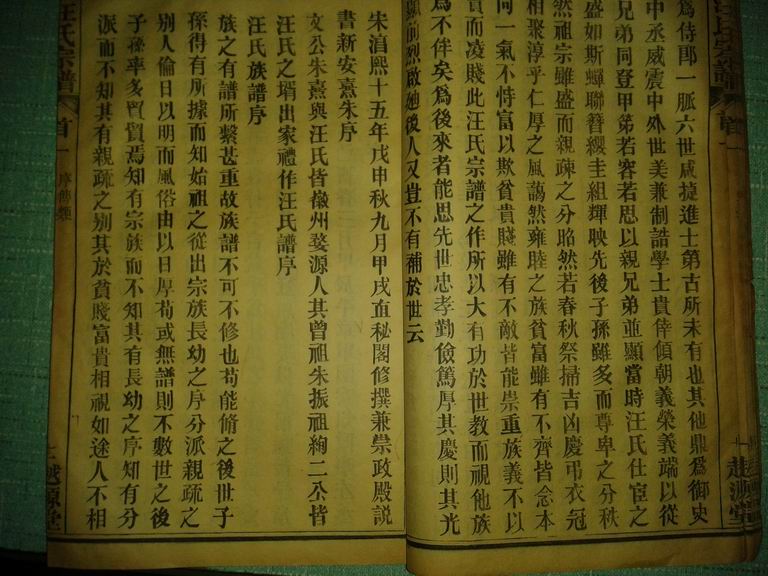 汪氏宗譜
首一
越源堂
為侍郎一脈六世咸捷進士第古所未有也其他鼎為御史
中丞威震中外世美兼制誥學士貴倖傾朝義榮義端以從
兄弟同登甲第若容若思以親兄弟並顯當時汪氏仕宦之
盛如斯蟬聯簪纓圭組輝映先後子孫雖多而尊卑之分秩
然祖宗雖盛而親疎之分昭然若春秋祭掃吉凶慶弔衣冠
相聚淳乎仁厚之風藹然雍睦之族貧富雖有不齊皆念本
同一氣不恃富以欺貧貴賤雖有不敵皆能崇重族義不以
貴而凌賤此汪氏宗譜之作所以大有功於世教而視他族
為不侔矣為後來者能思先世忠孝勤儉篤厚其慶則其光
顯前烈啟迪後人又豈不有補於世云
朱淳熙十五年戊申秋九月甲戌直秘閣修撰兼崇政殿說
書新安熹朱序
文公朱熹與汪氏皆徽州婺源人其曾祖朱振祖絢二公皆
汪氏之壻出家禮作汪氏譜序
汪氏族譜序
族之有譜所繫甚重故族譜不可不修也苟能脩之後世子
孫得有所據而知始祖之從出宗族長幼之序分派親疏之
別人倫日以明而風俗由以日厚苟或無譜則不數世之後
子孫率多貿貿焉知有宗族而不知其有長幼之序知有分
派而不知其有親疏之別其於貧賤富貴相視如途人不相
汪氏宗譜
首一
序傳類
越源堂